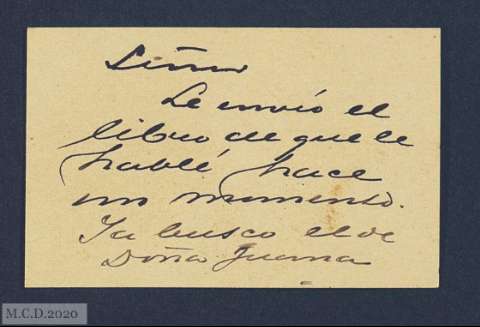 Señor
Le envío el
libro de que le
hablé, hace
un momento.
Ya busco el de
Doña Juana
M.C.D.2020